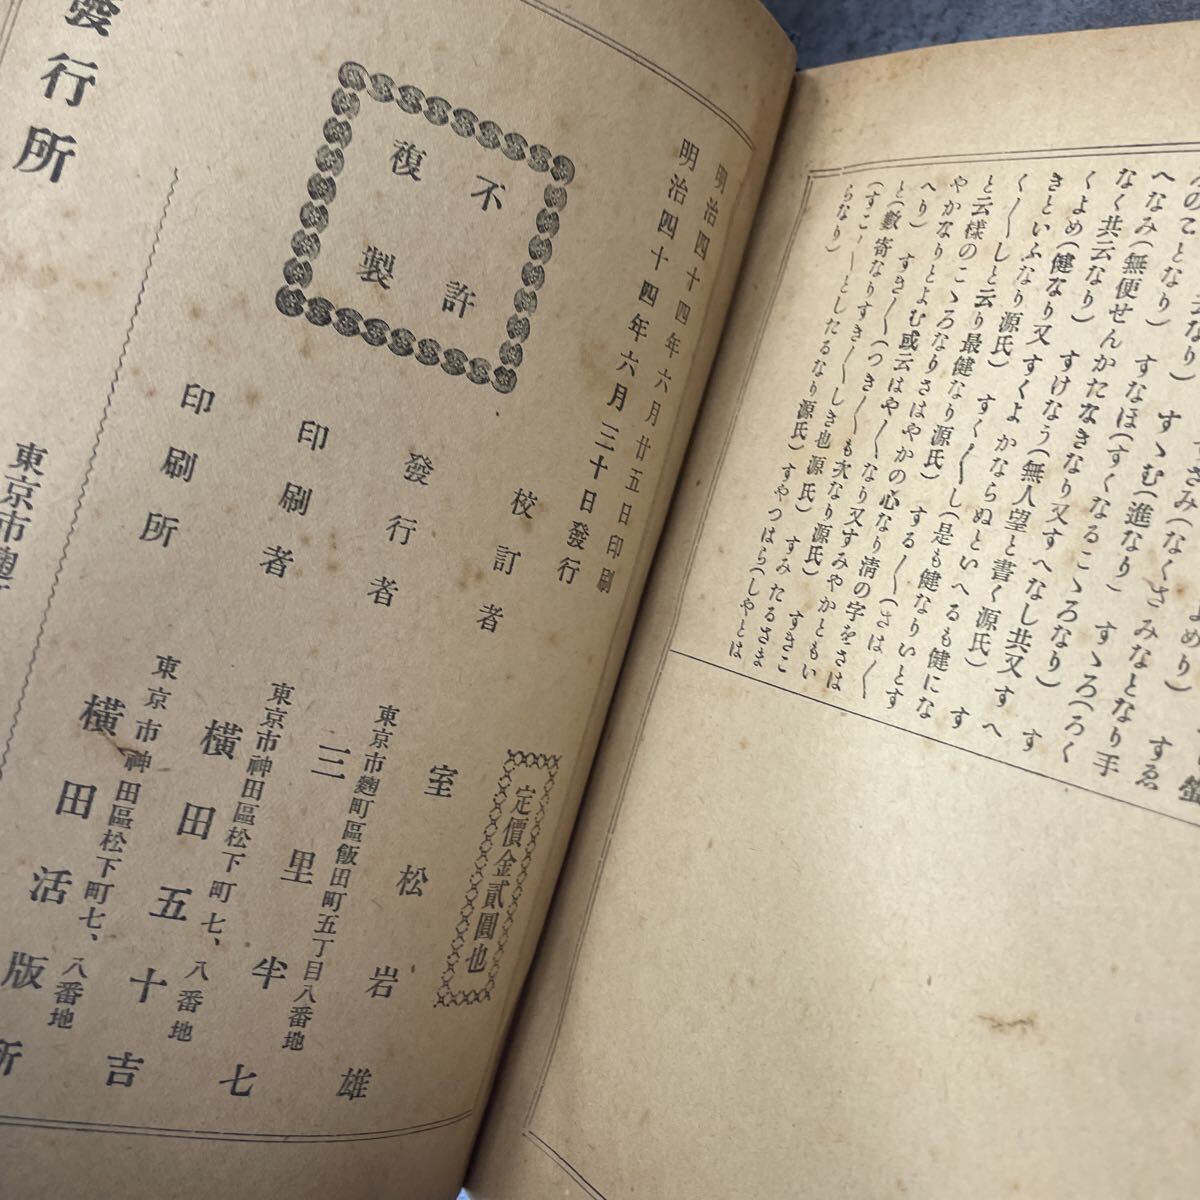 のことなり)
へなみ(無便せんかたなきなり又すへなし共又すへ
なく共云なり) すなほ(すくなるこゝろなり) す
くよめ(健なり又すくよかならぬといへるも健にな
きといふなり源氏) すく〳〵し(是も健なりいとす
く〳〵しと云り最健なり源氏) する〳〵(さは〳〵
と云樣のこゝろなりさはやかの心なり淸の字をさは
やかなりとよむ或云はやく〳〵なり又すみやかともい
へり) すき〳〵(つき〳〵も次なり源氏) すきこ
と(數寄なりすき〳〵しき也源氏) すみたるさま
(すこ〳〵としたるなり源氏) すやつはら(しやとは
らなり)
明治四十四年六月廿五日印刷
明治四十四年六月三十日發行
不許
複製
定價金貳圓也
校訂者 室松岩雄
東京市麴町區飯田町五丁目八番地
發行者 三里半七
東京市神田區松下町七、八番地
印刷者 橫田五十吉
東京市神田區松下町七、八番地
印刷所 橫田活版所
發行所
東京市麴